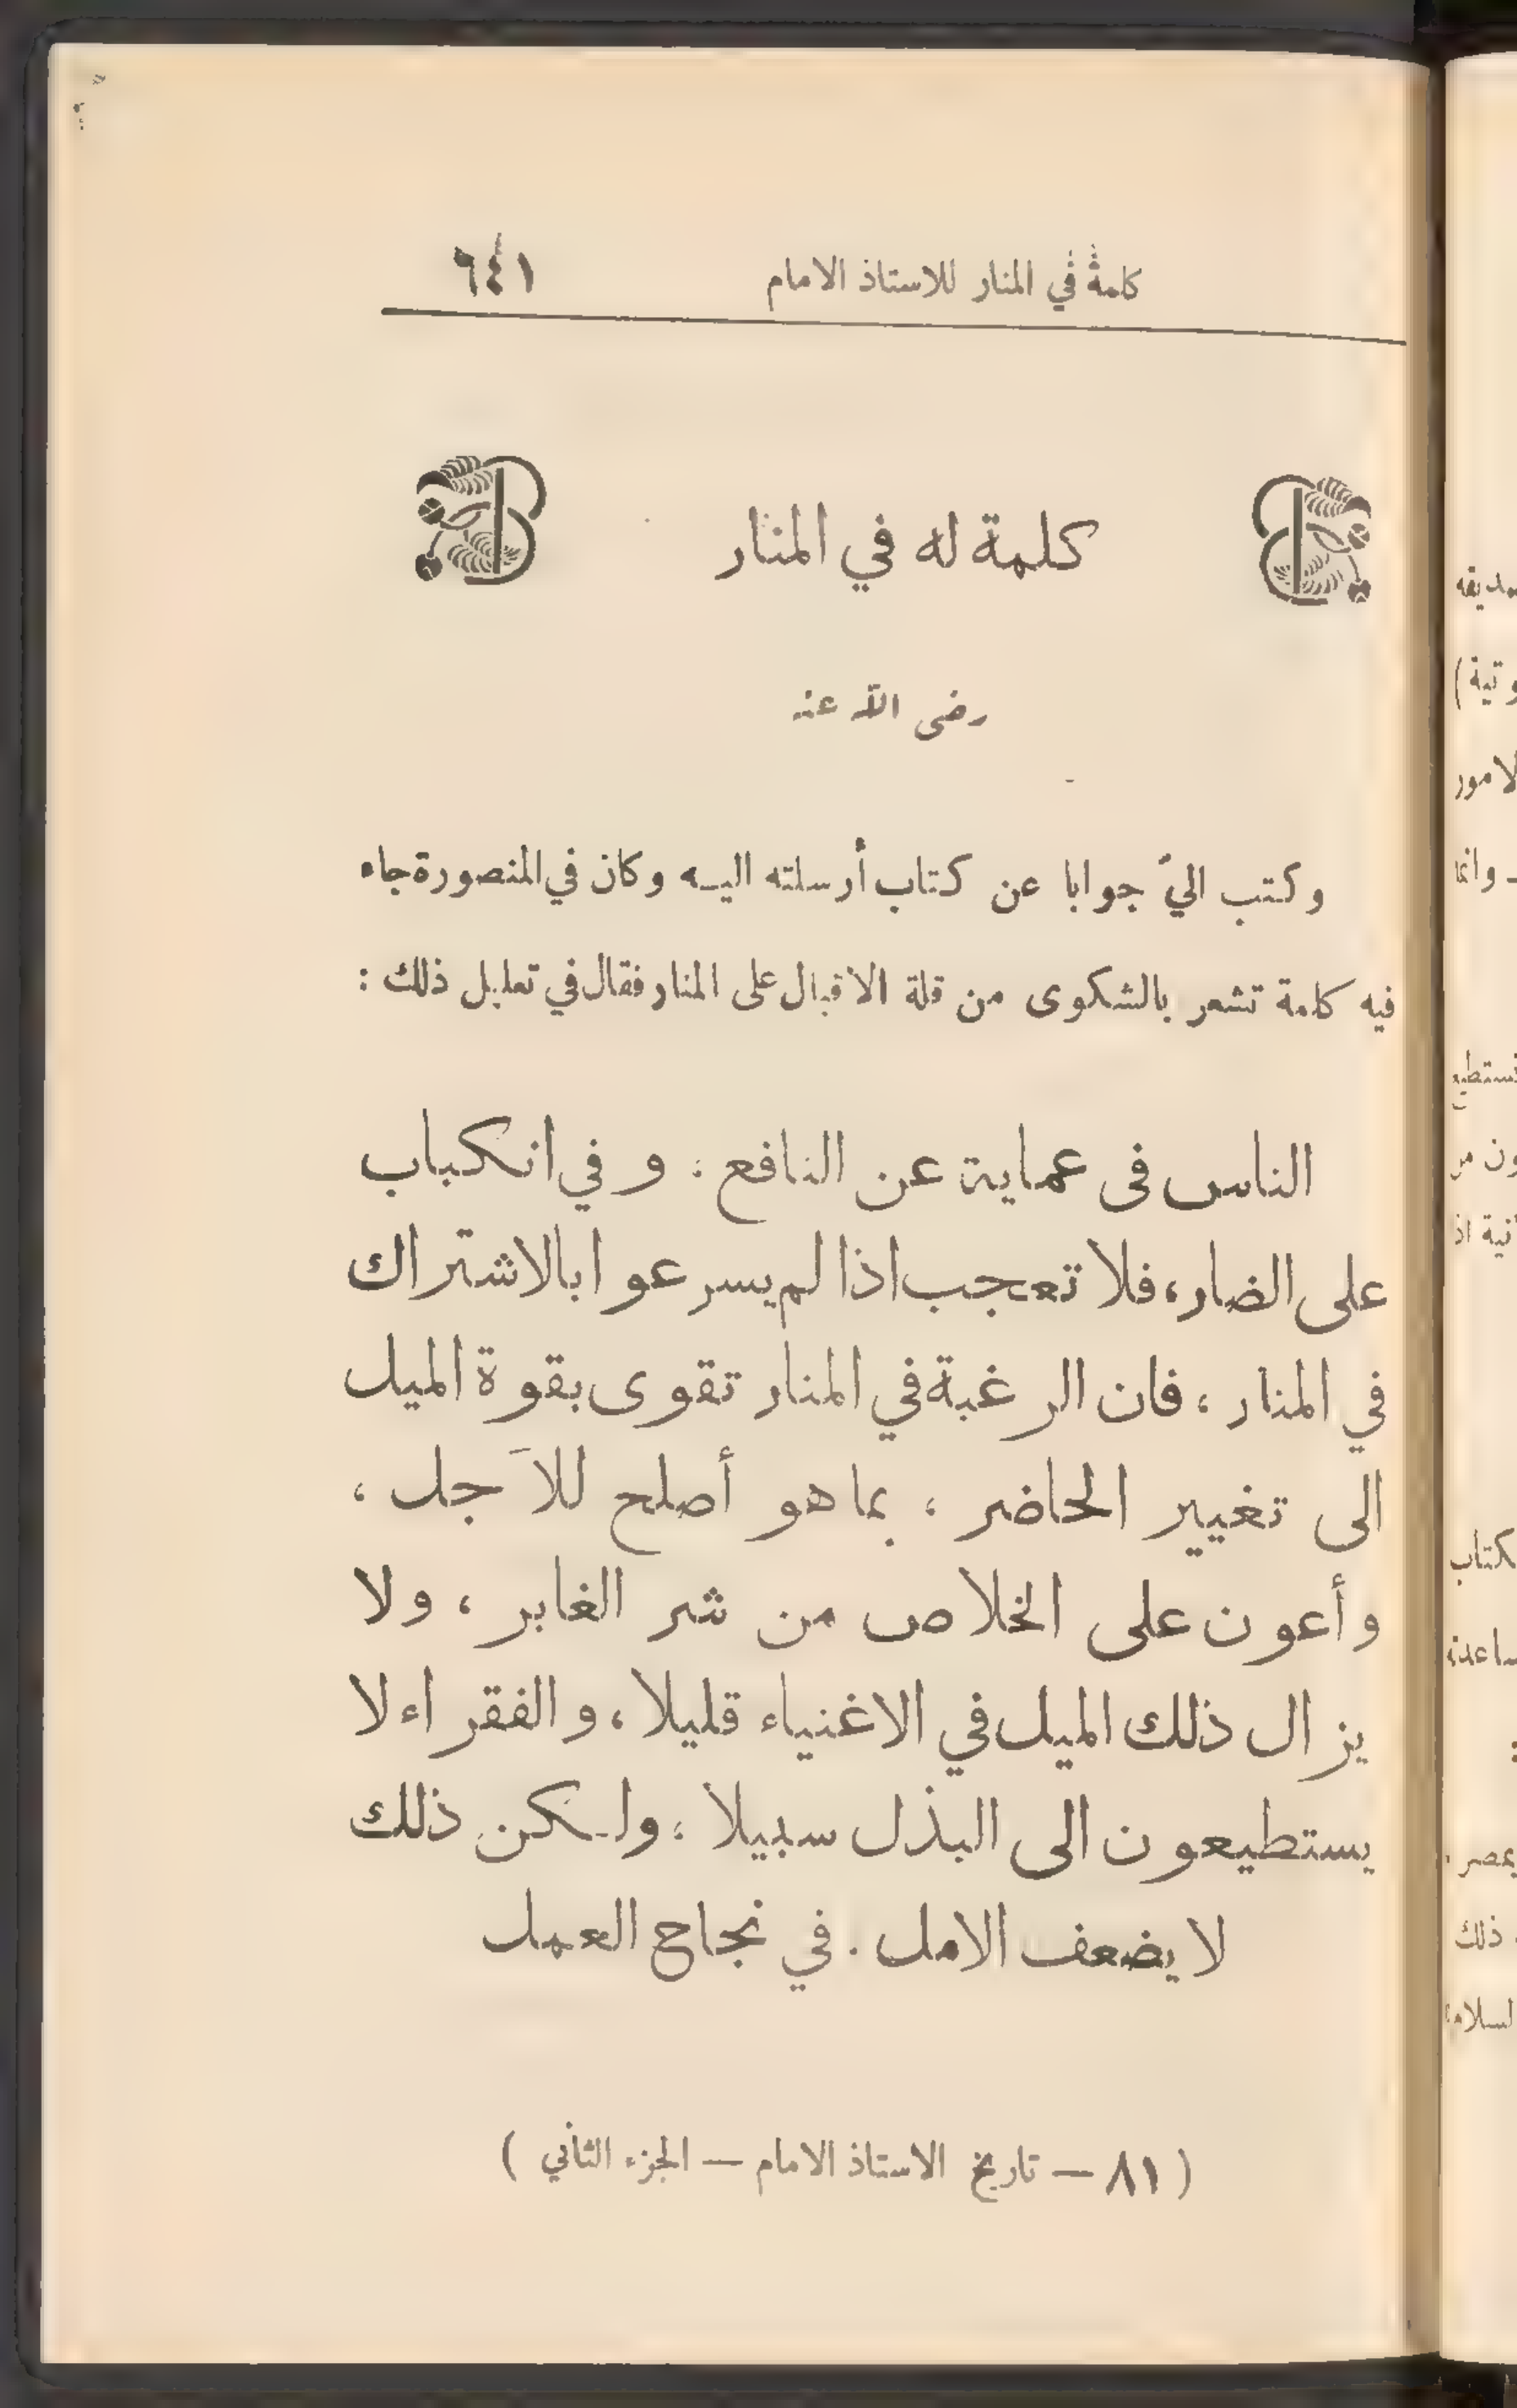 كلمة في المنار للاستاذ الامام ٦٤١
كلمة له في المنار
رضى الله عنه
وكتب اليّ جوابا عن كتاب أرسلته اليه وكان في المنصورة جاء
فيه كلمة تشعر بالشكوى من قلة الاقبال على المنار فقال في تعليل ذلك :
الناس فى عماية عن النافع ، و في انكباب
على الضار ، فلا تعجب اذا لم يسرعوا بالاشتراك
في المنار ، فان الرغبة في المنار تقوى بقوة الميل
الى تغيير الحاضر ، بما هو أصلح للآجل ،
وأعون على الخلاص من شر الغابر ، ولا
يزال ذلك الميل في الاغنياء قليلا ، والفقراء لا
يستطيعون الى البذل سبيلا ، ولكن ذلك
لا يضعف الامل . في نجاح العمل
( ٨١ — تاريخ الاستاذ الامام — الجزء الثاني )
وتية )
لامور
وانما
نستطيع
ون من
كتاب
بمصر .
ذلك